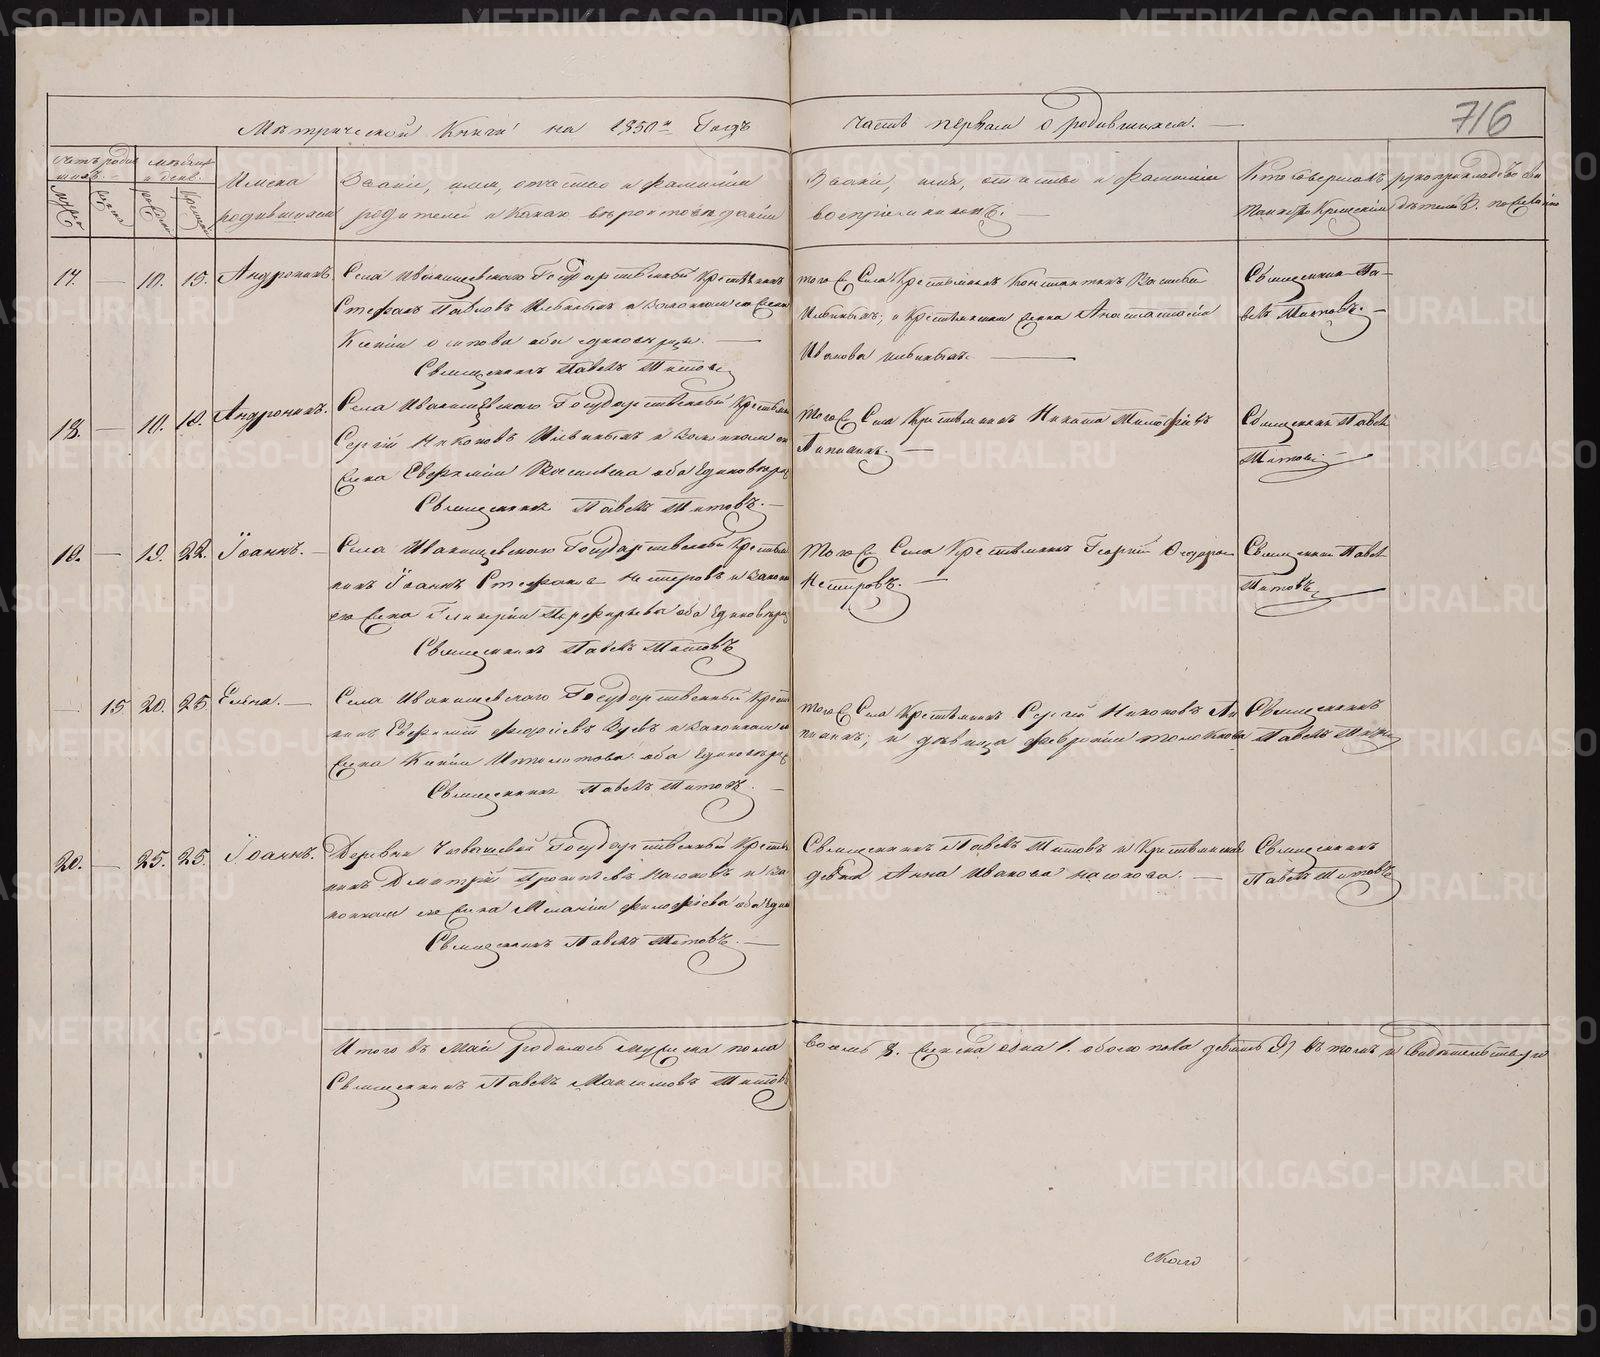 Метрической Книги на 1850й Годъ
часть первая о родившихся.
716
Счетъ родившихся.
Мѣсяцъ и день.
Имена родившихся
Званіе, имя, отчество и фамилія
родителей и какого вѣроисповѣданія
Званіе, имя, отчество и фамилія
воспріемниковъ.
Кто совершалъ
таинство Крещенія
рукоприкладство сви
дѣтелей
17. — 10. 15. Андроникъ.
Села Иванищевскаго Государственный Крестьянинъ
Стефанъ Павловъ Ильиныхъ и Законная его Жена
Ксенія Осипова оба единовѣрцы.
Священникъ Павелъ Титовъ
того же Села Крестьянинъ Константинъ
Ильиныхъ; и Крестьянская Жена Анастасія
Иванова Ильиныхъ.
Священникъ Па-
велъ Титовъ.
18. — 10. 18. Андроникъ.
Села Иванищевскаго Государственный Крестьян
Сергій Никоновъ Ильиныхъ и Законная его
Жена Евфимія Васильева оба Единовѣрц
Священникъ Павелъ Титовъ.
Того же Села Крестьянинъ Никита
Священникъ Павелъ
Титовъ
19. — 19. 22. Іоаннъ.
Села Иванищевскаго Государственный Крестьян
нинъ Іоаннъ Стефановъ Нестеровъ и Законн
его Жена Гликерія Порфирьева оба Единовѣрц
Священникъ Павелъ Титовъ
Того же Села Крестьянинъ Георгій Ѳедоровъ
Нестеровъ.
Священникъ Павелъ
Титовъ
— 15 20. 25. Елена.
Села Иванищевскаго Государственный Крестья
нинъ Евфимій Зуевъ и Законная его
Жена Ксенія Ипполитова оба Единовѣрц
Священникъ Павелъ Титовъ.
Того же Села Крестьянинъ Сергій Никоновъ
и дѣвица Февронія
Священникъ
Павелъ Титовъ
20. — 25. 25. Іоаннъ.
Деревни Государственный Крестья
нинъ Димитрій Насоновъ и За
конная его Жена Меланія оба Един
Священникъ Павелъ Титовъ.
Священникъ Павелъ Титовъ и Крестьянская
девка Анна Иванова Насонова.
Священникъ
Павелъ Титовъ
Итого въ Маѣ родилось мужеска пола
восемь 8. женска одна 1. обоего пола девять 9) въ томъ и свидѣтельствую
Священникъ Павелъ Максимовъ Титовъ
METRIKI.GASO-URAL.RU